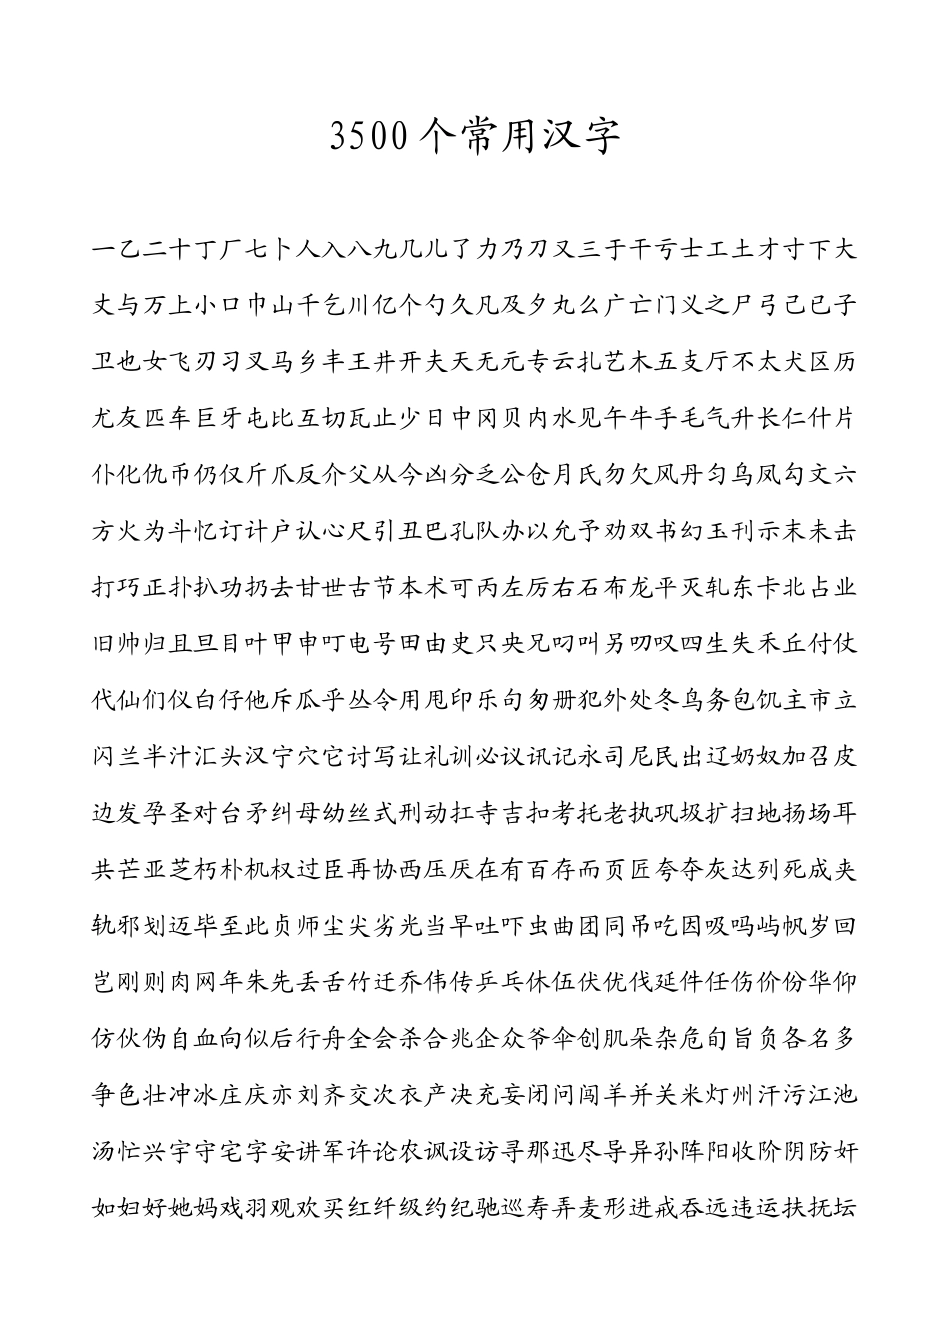 3500 个常用汉字
一乙二十丁厂七卜人入八九几儿了力乃刀又三于干亏士工土才寸下大
丈与万上小口巾山千乞川亿个勺久凡及夕丸么广亡门义之尸弓己已子
卫也女飞刃习叉马乡丰王井开夫天无元专云扎艺木五支厅不太犬区历
尤友匹车巨牙屯比互切瓦止少日中冈贝内水见午牛手毛气升长仁什片
仆化仇币仍仅斤爪反介父从今凶分乏公仓月氏勿欠风丹匀乌凤勾文六
方火为斗忆订计户认心尺引丑巴孔队办以允予劝双书幻玉刊示末未击
打巧正扑扒功扔去甘世古节本术可丙左厉右石布龙平灭轧东卡北占业
旧帅归且旦目叶甲申叮电号田由史只央兄叼叫另叨叹四生失禾丘付仗
代仙们仪白仔他斥瓜乎丛令用甩印乐句匆册犯外处冬鸟务包饥主市立
闪兰半汁汇头汉宁穴它讨写让礼训必议讯记永司尼民出辽奶奴加召皮
边发孕圣对台矛纠母幼丝式刑动扛寺吉扣考托老执巩圾扩扫地扬场耳
共芒亚芝朽朴机权过臣再协西压厌在有百存而页匠夸夺灰达列死成夹
轨邪划迈毕至此贞师尘尖劣光当早吐吓虫曲团同吊吃因吸吗屿帆岁回
岂刚则肉网年朱先丢舌竹迁乔伟传乒乓休伍伏优伐延件任伤价份华仰
仿伙伪自血向似后行舟全会杀合兆企众爷伞创肌朵杂危旬旨负各名多
争色壮冲冰庄庆亦刘齐交次衣产决充妄闭问闯羊并关米灯州汗污江池
汤忙兴宇守宅字安讲军许论农讽设访寻那迅尽导异孙阵阳收阶阴防奸
如妇好她妈戏羽观欢买红纤级约纪驰巡寿弄麦形进戒吞远违运扶抚坛